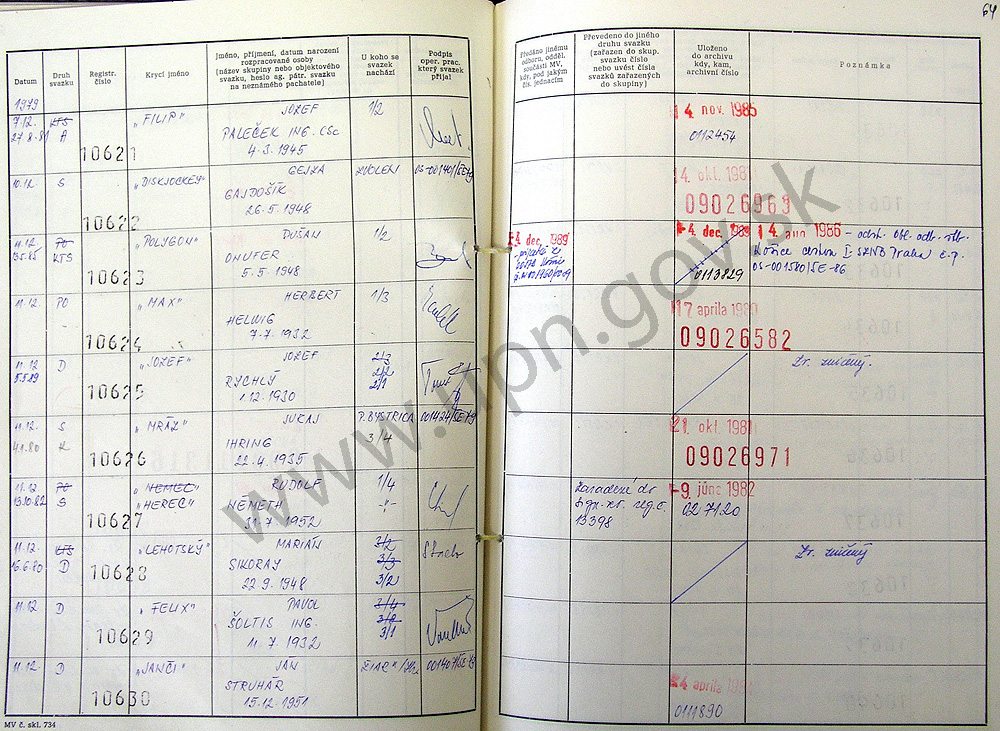 64
Datum
Druh svazku
Registr. číslo
Krycí jméno
Jméno, příjmení, datum narození
rozpracované osoby
(název skupiny nebo objektového
svazku, heslo ag. pátr. svazku
na neznámého pachatele)
U koho se
svazek
nachází
Podpis
oper. prac.
který svazek
přijal
Předáno jinému
odboru, odděl.
součásti MV,
kdy, pod jakým
čís. jednacím
Převedeno do jiného
druhu svazku
(zařazen do skup.
svazku číslo
nebo uvést čísla
svazků zařazených
do skupiny)
Uloženo
do archivu
kdy, kam,
archivní číslo
Poznámka
1979
9.12. KTS „FILIP" JOZEF 1/2 14 nov. 1985
27.8.81 A PALEČEK ING. CSc 0112454
10621 4.3.1945
10.12. S „DISKJOCKEY" GEJZA ZVOLEN 4. okt. 198
GAJDOŠÍK 09026963
10622 26.5.1948
11.12. PO „POLYGON" DUŠAN 1/2 4 dec. 1989 4 dec. 1989 14 aug 1986
KTS ONUFER 0113829 OS-001580/SE-86
10623 5.5.1948
11.12. PO „MAX" HERBERT 1/3 17 apríla 1980
HELWIG 09026582
10624 7.7.1932
11.12. D „JOZEF" JOZEF 2/3 Zv. zničený.
5.5.89 RYCHLÝ 2/2
10625 1.12.1930 2/1
11.12. S „MRÁZ" JURAJ P. BYSTRICA 001424/SE-79 21. okt. 198
4.1.80 K IHRING 3/4 09026971
10626 22.4.1935
11.12. PO „NEMEC" RUDOLF 1/4 Zaradené do -9. júna 1982
13.10.82 S „HEREC" NEMETH -"- 027120
10627 31.7.1952 13398
11.12. KTS „LEHOTSKÝ" MARIÁN 3/2 Zv. zničený
16.6.80 D SIKORAY 3/3
10628 22.9.1948 3/2
11.12 D „FELIX" PAVOL 3/4
ŠOLTIS ING. 3/2
10629 11.7.1932 3/1
11.12. D „JANČI" JÁN 24 apríla 198
STRUHÁR 0111890
10630 15.12.1951
MV č. skl. 734
www.upn.gov.sk